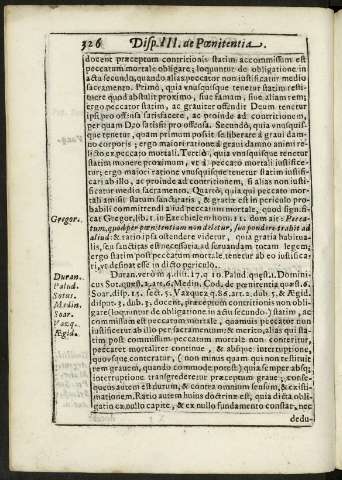 326 Disp. III. de Pœnitentia.
docent præceptum contritionis statim ac commissum est
peccatum mortale obligare; loquuntur de obligatione in
actu secundo, quando alias peccator non iustificatur medio
sacramento. Primò, quia vnusquisque tenetur statim resti-
tuere quod abstulit proximo, siue famam, siue aliam rem;
ergo peccator statim, ac grauiter offendit Deum tenetur
ipsi pro offensa satisfacere, ac proinde ad contritionem,
per quam Deo satisfit pro offensa. Secundò, quia vnusquis-
que tenetur, quam primum possit se liberare à graui dam-
no corporis; ergo maiori ratione à graui damno animi re-
licto ex peccato mortali. Tertiò, quia vnusquisque tenetur
statim monere proximum, vt à peccato mortali iustifice-
tur; ergo maiori ratione vnusquisque tenetur statim iustifi-
cari ab illo, ac proinde ad contritionem, si alias non iusti-
ficatur medio sacramento. Quartò, quia qui peccato mor-
tali amisit statum sanctitatis, & gratiæ est in periculo pro-
babili committendi aliud peccatum mortale, quod signifi-
Gregor. cat Gregor. lib. 1. in Ezechielem hom. 11. dum ait: Pecca-
tum, quod per pœnitentiam non deletur, suo pondere trahit ad
aliud: & ratio ipsa ostendere videtur, quia gratia habitua-
lis, seu sanctitas est necessaria ad seruandam totam legem;
ergo statim post peccatum mortale tenetur ab eo iustifica-
ri, vt desinat esse in dicto periculo.
Duran. Duran. verò in 4. dist. 17. q. 10. Palud. quæst. 1. Domini-
Palud. cus Sot. quæst. 2. art. 6. Medin. Cod. de pœnitentia quæst. 6.
Sotus. Soar. disp. 15. sect. 5. Vazquez q. 86. art. 2. dub. 5. & Ægid.
Medin. disput. 3. dub. 3. docent, præceptum contritionis non obli-
Soar. gare (loquuntur de obligatione in actu secundo) statim, ac
Vazq. commissum est peccatum mortale, quamuis peccator non
Ægid. iustificetur ab illo per sacramentum; & meritò, alias qui sta-
tim post commissum peccatum mortale non conteritur,
peccaret mortaliter continue, & absque interruptione,
quovsque conteratur, (non minus quam qui non restituit
rem grauem, quando commode potest) quia semper absq;
interruptione transgrederetur præceptum graue; conse-
quens autem est durum, & contra omnium sensum, & existi-
mationem. Ratio autem huius doctrinæ est, quia dicta obli-
gatio ex nullo capite, & ex nullo fundamento constat, nec
dedu-